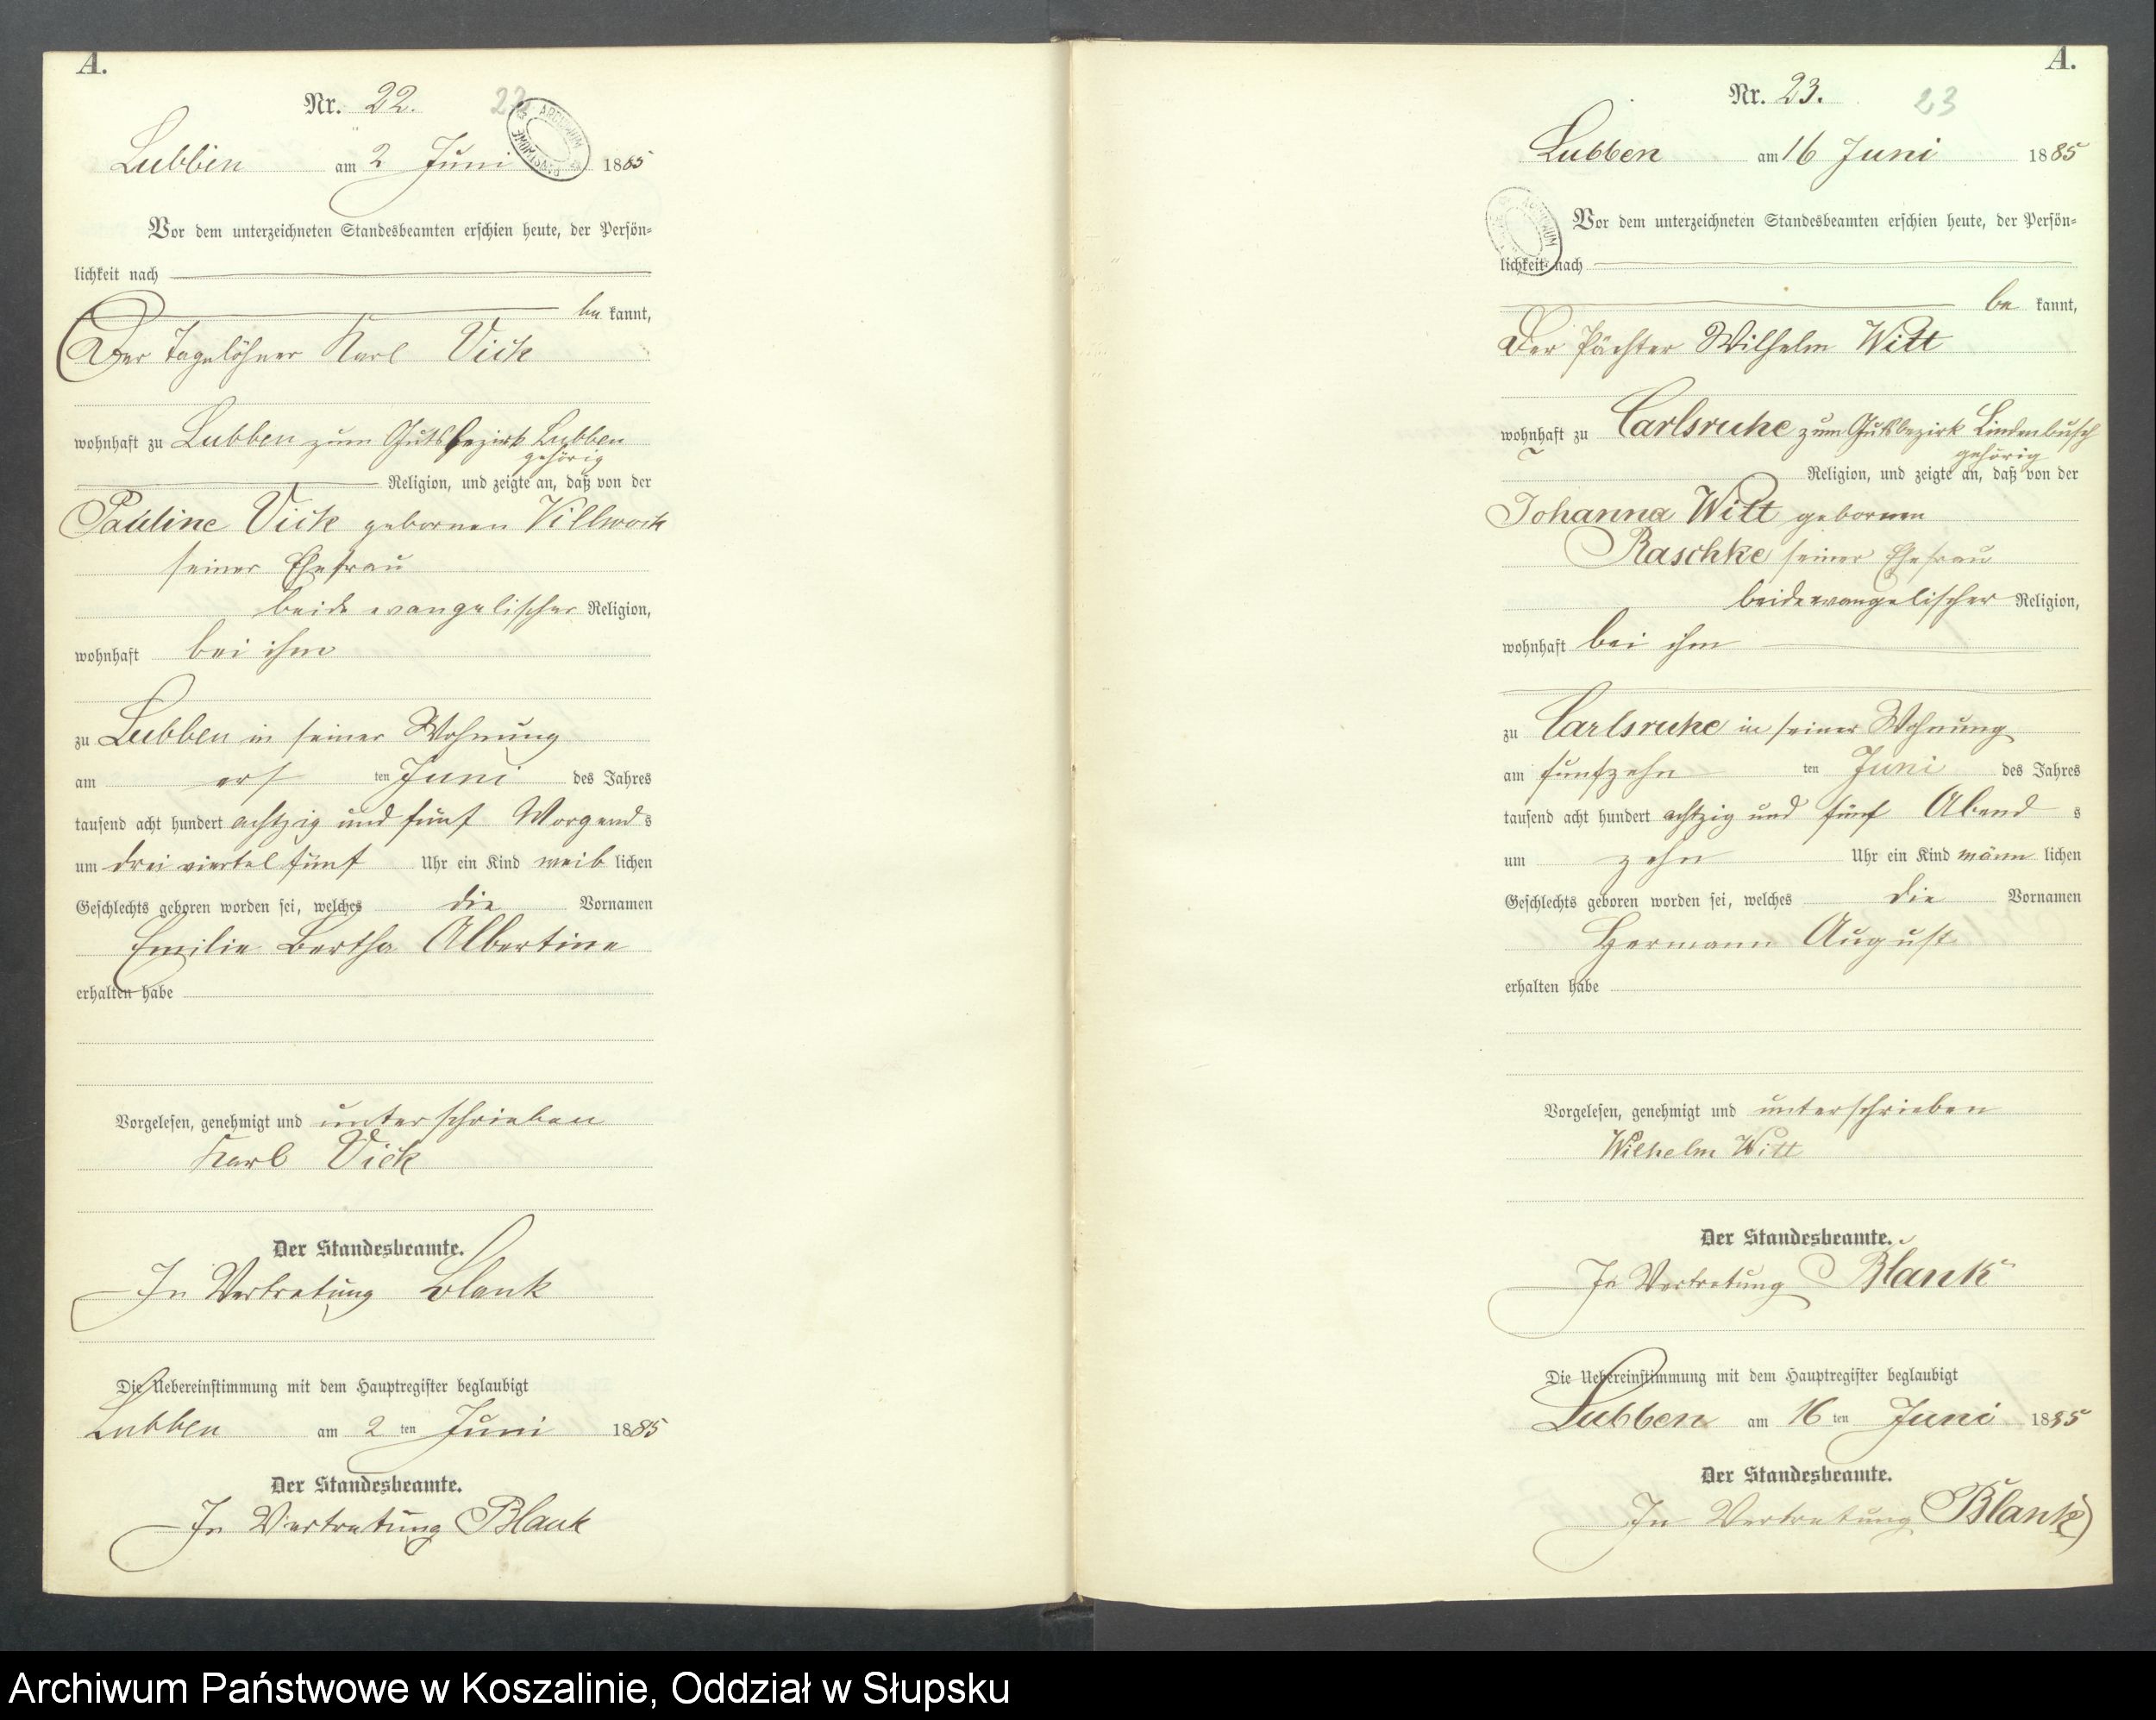 A.
Nr. 22.
Lubben am 2 Juni 1885
Vor dem unterzeichneten Standesbeamten erschien heute, der Persön=
lichkeit nach
be kannt,
Der Tagelöhner Karl Vick
wohnhaft zu Lubben zum Gutsbezirk Lubben
gehörig
Religion, und zeigte an, daß von der
Pauline Vick gebornen Villwock
seiner Ehefrau
beide evangelischer Religion,
wohnhaft bei ihm
zu Lubben in seiner Wohnung
am ers ten Juni des Jahres
tausend acht hundert achtzig und fünf Morgends
um drei viertel fünf Uhr ein Kind weib lichen
Geschlechts geboren worden sei, welches die Vornamen
Emilie Bertha Albertine
erhalten habe
Vorgelesen, genehmigt und unterschrieben
Karl Vick
Der Standesbeamte.
In Vertretung Blank
Die Uebereinstimmung mit dem Hauptregister beglaubigt
Lubben am 2 ten Juni 1885
Der Standesbeamte.
In Vertretung Blank
A.
Nr. 23.
23
Lubben am 16 Juni 1885
Vor dem unterzeichneten Standesbeamten erschien heute, der Persön=
lichkeit nach
be kannt,
Der Pächter Wilhelm Witt
wohnhaft zu Carlsruhe zum Gutsbezirk Lindenbusch
gehörig
Religion, und zeigte an, daß von der
Johanna Witt gebornen
Raschke seiner Ehefrau
beide evangelischer Religion,
wohnhaft bei ihm
zu Carlsruhe in seiner Wohnung
am funfzehn ten Juni des Jahres
tausend acht hundert achtzig und fünf Abend s
um zehn Uhr ein Kind männ lichen
Geschlechts geboren worden sei, welches die Vornamen
Hermann August
erhalten habe
Vorgelesen, genehmigt und unterschrieben
Wilhelm Witt
Der Standesbeamte.
In Vertretung Blank
Die Uebereinstimmung mit dem Hauptregister beglaubigt
Lubben am 16 ten Juni 1885
Der Standesbeamte.
In Vertretung Blank
Archiwum Państwowe w Koszalinie, Oddział w Słupsku